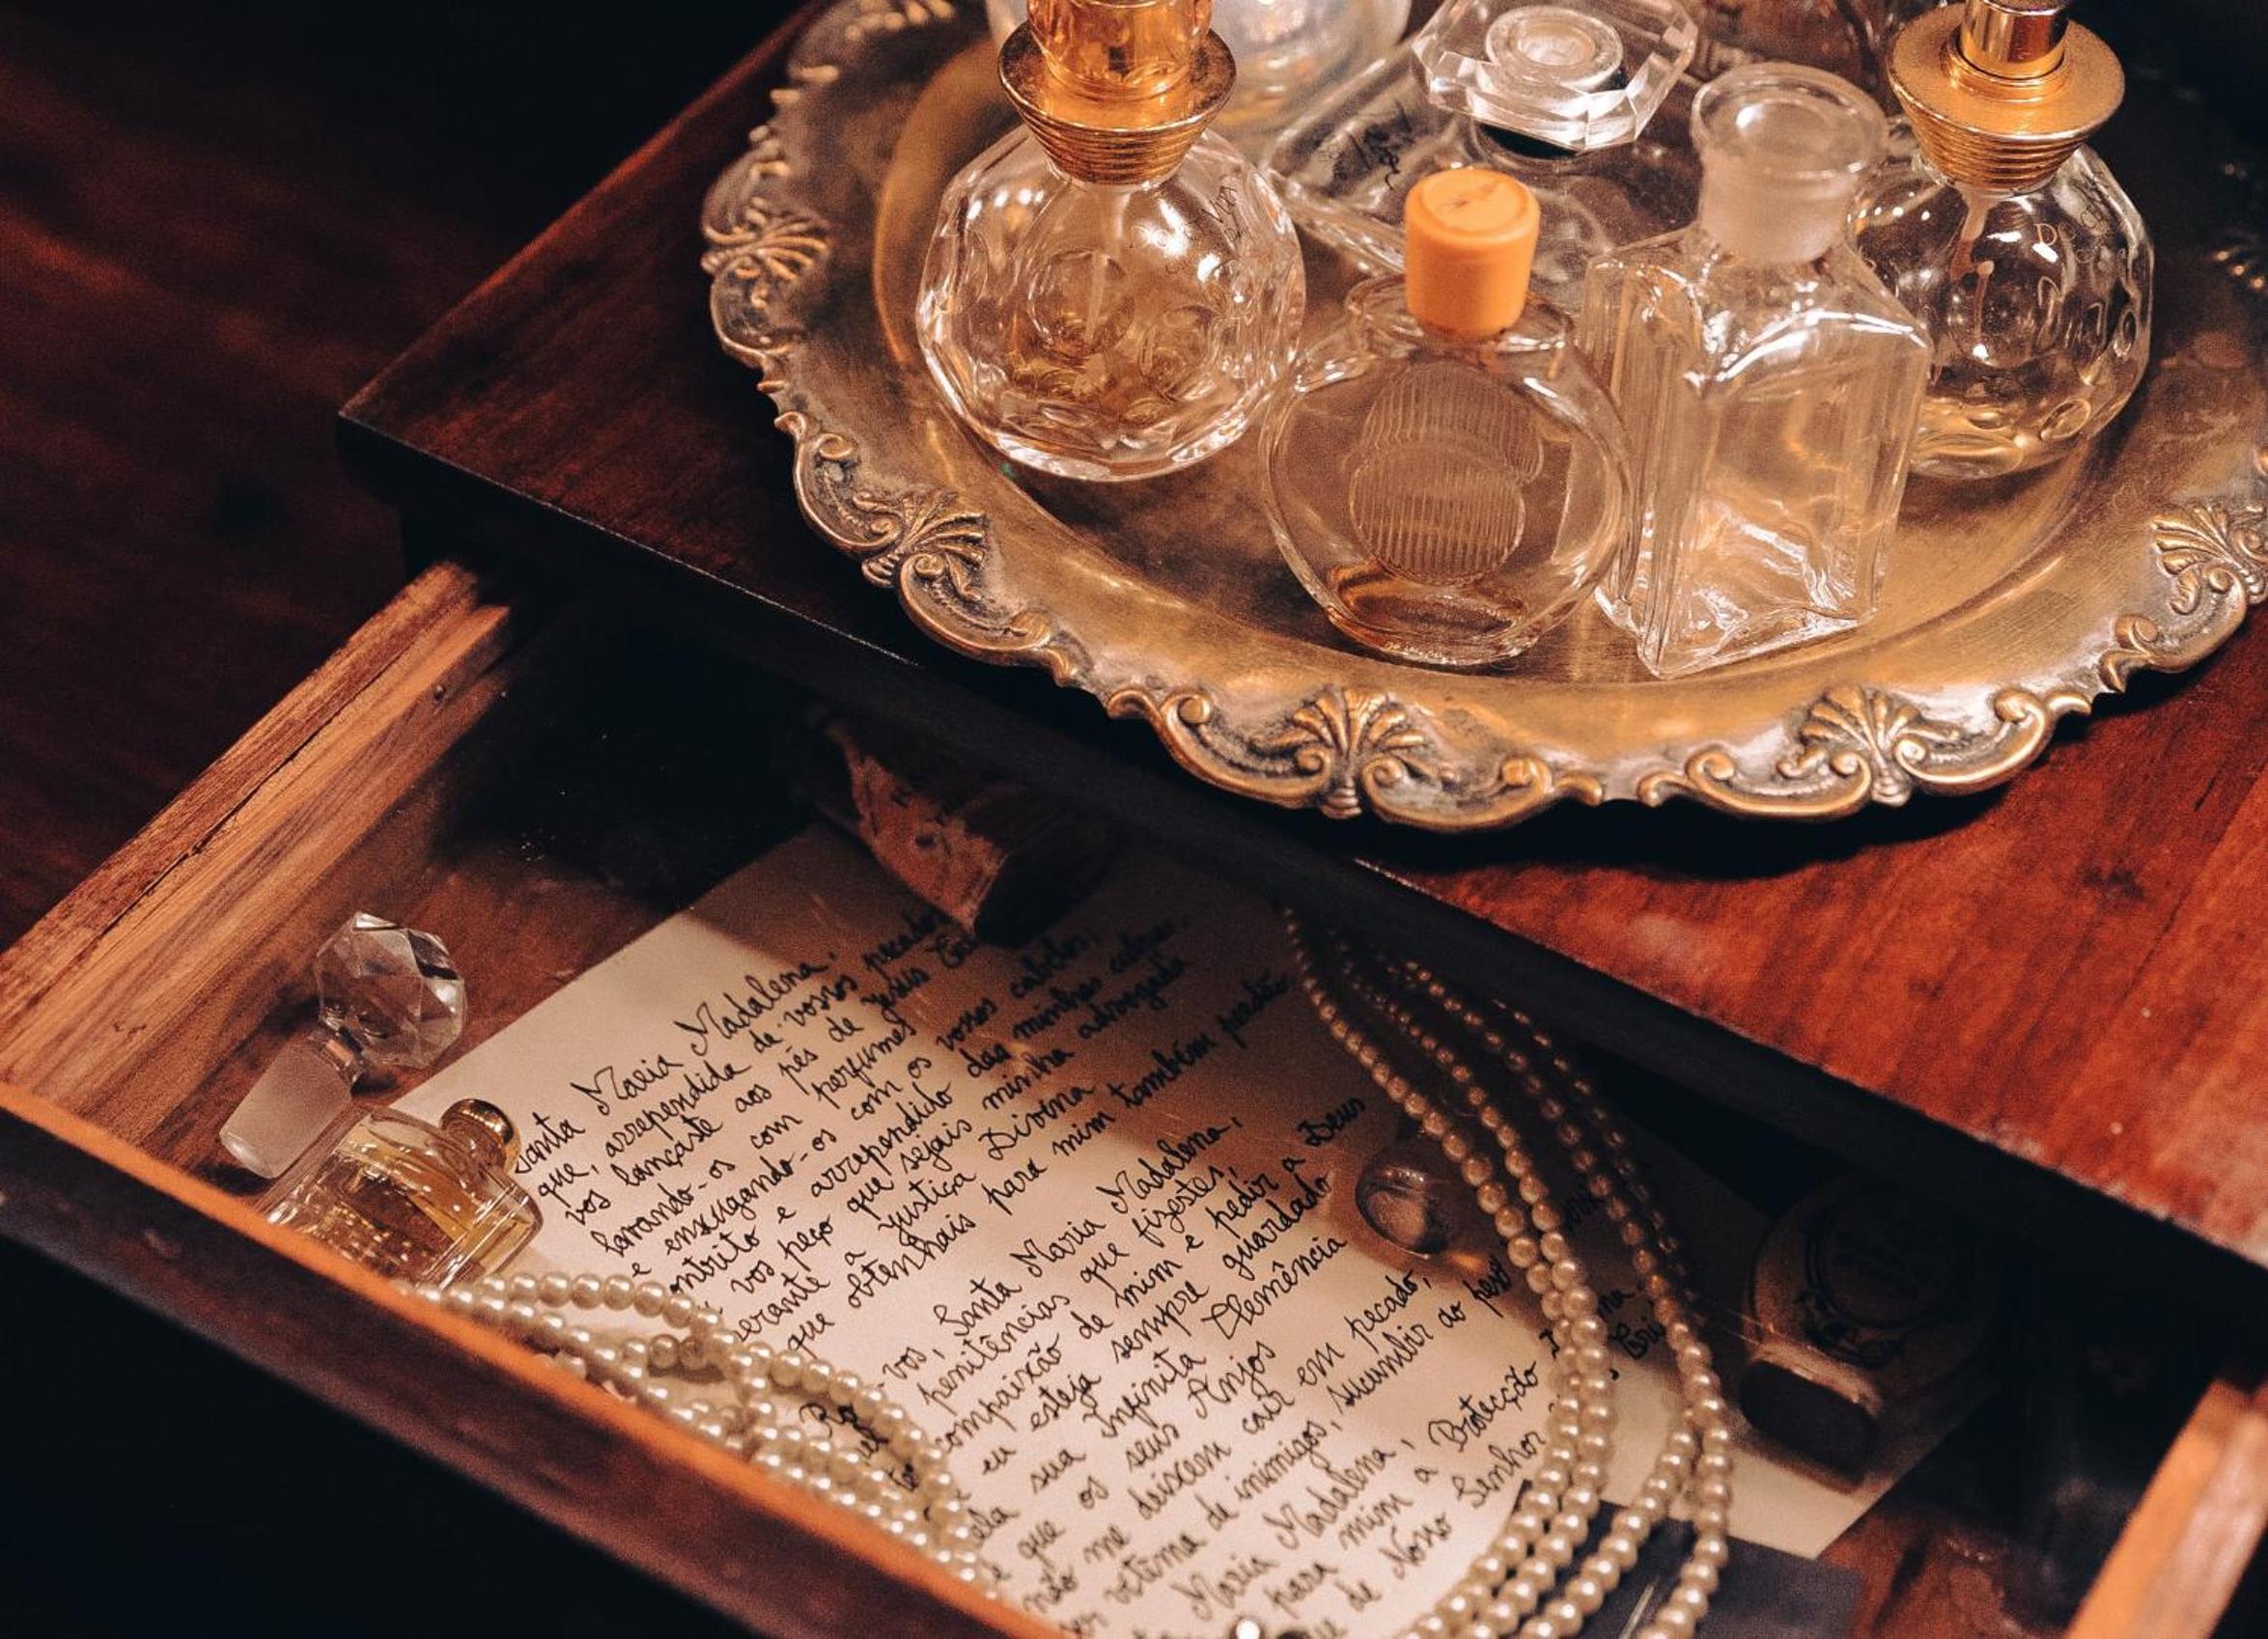 Santa Maria Madalena,
que, arrependida de vossos pecados
vos lançaste aos pés de Jesus
lavando-os com perfumes
e enxugando-os com os vossos cabelos,
contrito e arrependido das minhas culpas,
vos peço que sejais minha advogada
perante a Justiça Divina
que obtenhais para mim também perdão
vos, Santa Maria Madalena,
penitências que fizestes,
compaixão de mim e pedir a Deus
eu esteja sempre guardado
pela sua Infinita Clemência
e que os seus Anjos
não me deixem cair em pecado,
vítima de inimigos, sucumbir ao peso
Maria Madalena,
para mim a Protecção
de Nosso Senhor